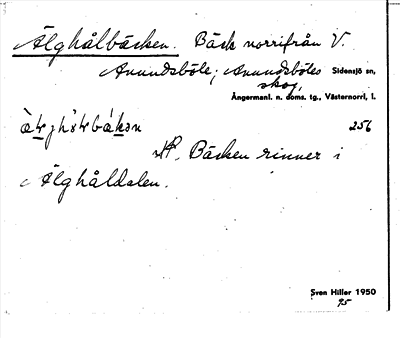 Älghålbäcken. Bäck norrifrån V.
Anundsböle; Anundsböles Sidensjö sn,
skog,
Ångermanl. n. doms. tg., Västernorrl, l.
256
Bäcken rinner i
Älghåldalen.
Sven Hiller 1950